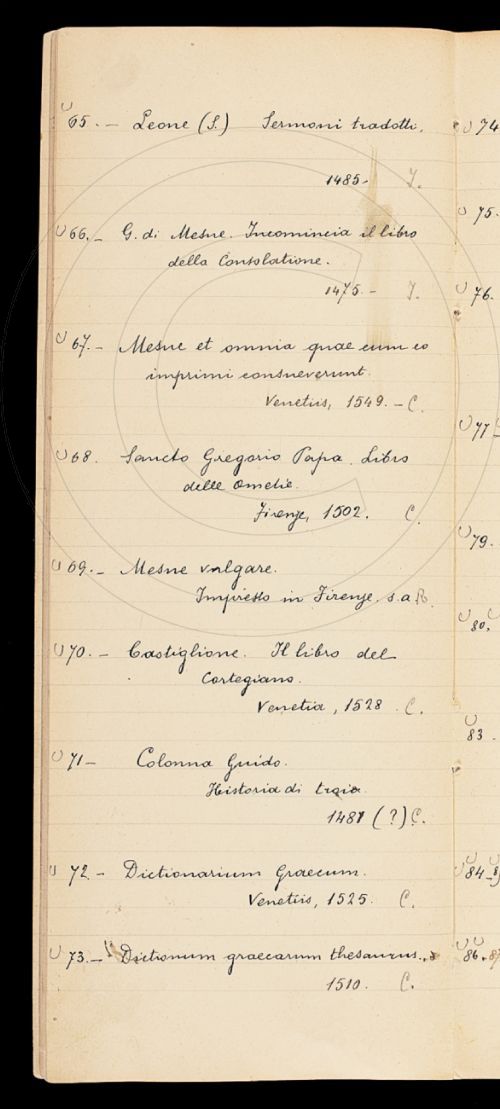 65. — Leone (S.) Sermoni tradotti.
1485 - I.
66. - G. di Mesue. Incomincia il libro
della Consolatione.
1475. - I.
67. - Mesue et omnia quae cum eo
imprimi consueverunt.
Venetiis, 1549. - C.
68. Sancto Gregorio Papa. Libro
delle Omelie.
Firenze, 1502. C.
69. - Mesue vulgare.
Impresso in Firenze. s.a R.
70. - Castiglione. Il libro del
Cortegiano.
Venetia, 1528. C.
71 - Colonna Guido.
Historia di troia.
1481 (?) C.
72. - Dictionarium Graecum.
Venetiis, 1525. C.
73. - Dictionum graecarum thesaurus.
1510. C.
74
75.
76.
77
79.
80.
83.
84 -
86.
C